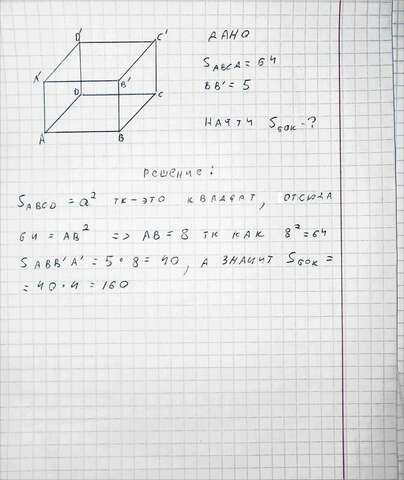 D' C'
ДАНО
A' B'
SABCD = 64
D C
BB' = 5
A B
НАЙТИ Sбок - ?
РЕШЕНИЕ:
SABCD = a² ТК-ЭТО КВАДРАТ, ОТСЮДА
64 = AB² => AB = 8 ТК КАК 8² = 64
SABB'A' = 5 · 8 = 40, А ЗНАЧИТ Sбок =
= 40 · 4 = 160